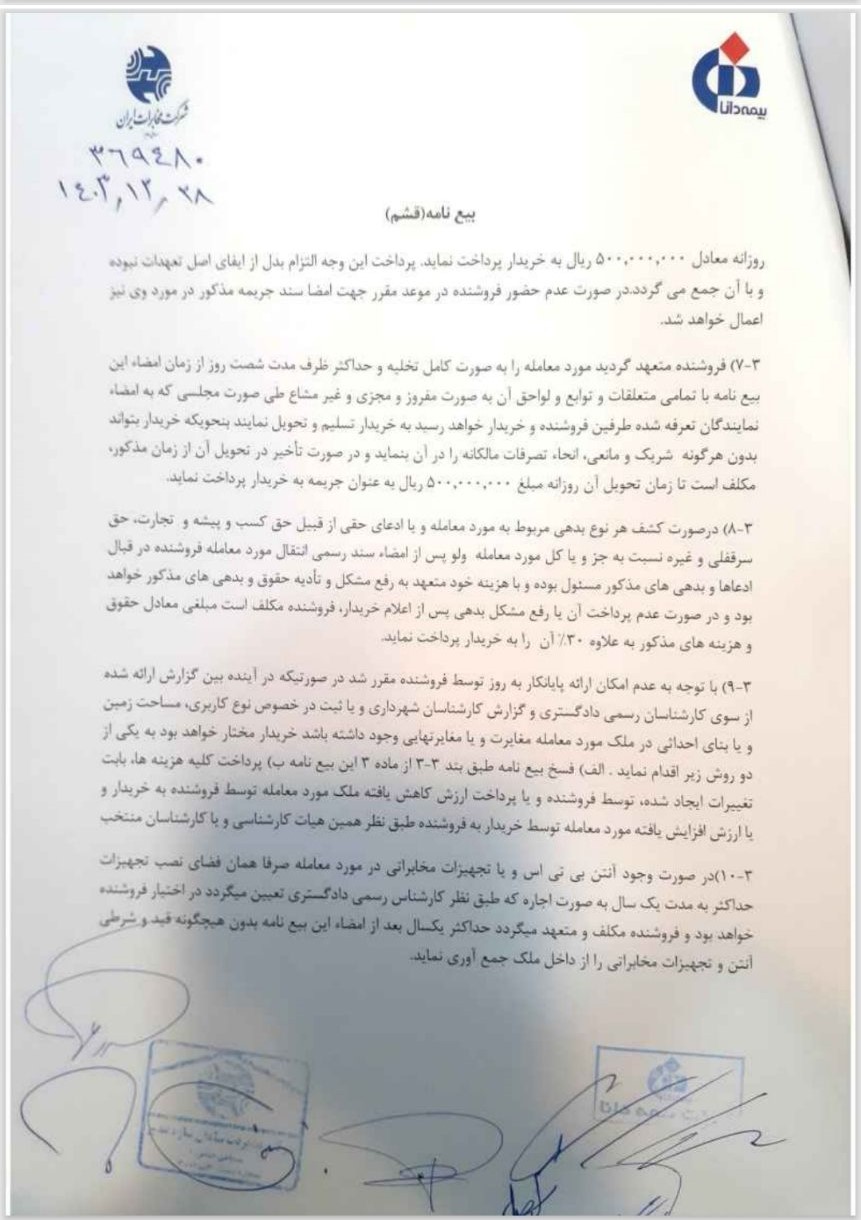 شرکت مخابرات ایران
بیمه دانا
۳۶۹۴۸۰
۱۴۰۳,۱۲,۲۸
بیع نامه(قشم)
روزانه معادل ۵۰۰,۰۰۰,۰۰۰ ریال به خریدار پرداخت نماید. پرداخت این وجه التزام بدل از ایفای اصل تعهدات نبوده
و با آن جمع می گردد.در صورت عدم حضور فروشنده در موعد مقرر جهت امضا سند جریمه مذکور در مورد وی نیز
اعمال خواهد شد.
۷-۳) فروشنده متعهد گردید مورد معامله را به صورت کامل تخلیه و حداکثر ظرف مدت شصت روز از زمان امضاء این
بیع نامه با تمامی متعلقات و توابع و لواحق آن به صورت مفروز و مجزی و غیر مشاع طی صورت مجلسی که به امضاء
نمایندگان تعرفه شده طرفین فروشنده و خریدار خواهد رسید به خریدار تسلیم و تحویل نمایند بنحویکه خریدار بتواند
بدون هرگونه شریک و مانعی، انحاء تصرفات مالکانه را در آن بنماید و در صورت تأخیر در تحویل آن از زمان مذکور،
مکلف است تا زمان تحویل آن روزانه مبلغ ۵۰۰,۰۰۰,۰۰۰ ریال به عنوان جریمه به خریدار پرداخت نماید.
۸-۳) درصورت کشف هر نوع بدهی مربوط به مورد معامله و یا ادعای حقی از قبیل حق کسب و پیشه و تجارت، حق
سرقفلی و غیره نسبت به جز و یا کل مورد معامله ولو پس از امضاء سند رسمی انتقال مورد معامله فروشنده در قبال
ادعاها و بدهی های مذکور مسئول بوده و با هزینه خود متعهد به رفع مشکل و تأدیه حقوق و بدهی های مذکور خواهد
بود و در صورت عدم پرداخت آن یا رفع مشکل بدهی پس از اعلام خریدار، فروشنده مکلف است مبلغی معادل حقوق
و هزینه های مذکور به علاوه ۳۰٪ آن را به خریدار پرداخت نماید.
۹-۳) با توجه به عدم امکان ارائه پایانکار به روز توسط فروشنده مقرر شد در صورتیکه در آینده بین گزارش ارائه شده
از سوی کارشناسان رسمی دادگستری و گزارش کارشناسان شهرداری و یا ثبت در خصوص نوع کاربری، مساحت زمین
و یا بنای احداثی در ملک مورد معامله مغایرت و یا مغایرتهایی وجود داشته باشد خریدار مختار خواهد بود به یکی از
دو روش زیر اقدام نماید . الف) فسخ بیع نامه طبق بند ۳-۳ از ماده ۳ این بیع نامه ب) پرداخت کلیه هزینه ها، بابت
تغییرات ایجاد شده، توسط فروشنده و یا پرداخت ارزش کاهش یافته ملک مورد معامله توسط فروشنده به خریدار و
یا ارزش افزایش یافته مورد معامله توسط خریدار به فروشنده طبق نظر همین هیات کارشناسی و یا کارشناسان منتخب
۱۰-۳)در صورت وجود آنتن بی تی اس و یا تجهیزات مخابراتی در مورد معامله صرفا همان فضای نصب تجهیزات
حداکثر به مدت یک سال به صورت اجاره که طبق نظر کارشناس رسمی دادگستری تعیین میگردد در اختیار فروشنده
خواهد بود و فروشنده مکلف و متعهد میگردد حداکثر یکسال بعد از امضاء این بیع نامه بدون هیچگونه قید و شرطی
آنتن و تجهیزات مخابراتی را از داخل ملک جمع آوری نماید.